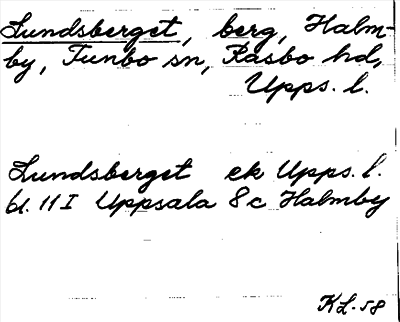 Lundsberget, berg, Halm-
by, Funbo sn, Rasbo hd,
Upps. l.
Lundsberget ek Upps. l.
bl. 11 I Uppsala 8c Halmby
KL-58